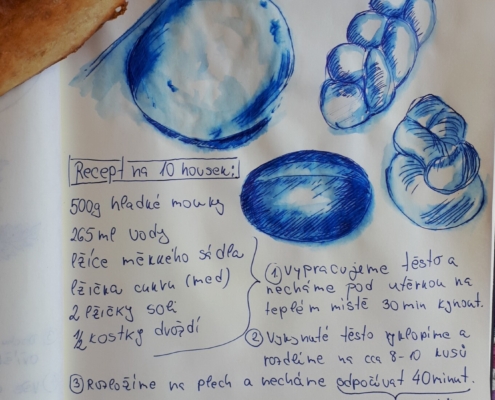 Recept na 10 housek:
500g hladké mouky
265 ml vody
lžíce měkkého sádla
lžička cukru (med)
2 lžičky soli
1/2 kostky droždí
① Vypracujeme těsto a
necháme pod utěrkou na
teplém místě 30 min kynout.
② Vykynuté těsto vyklopíme a
rozdělíme na cca 8-10 kusů
③ Rozložíme na plech a necháme odpočívat 40 minut.